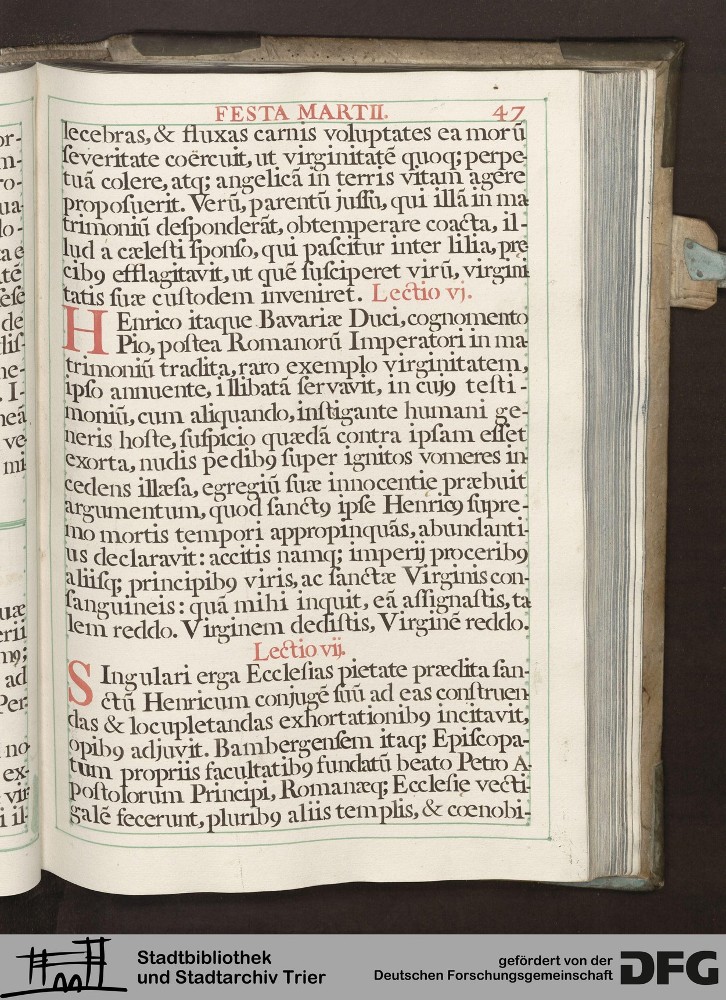 FESTA MARTII. 47
lecebras, & fluxas carnis voluptates ea morū
ſeveritate coërcuit, ut virginitatē quoq; perpe-
tuā colere, atq; angelicā in terris vitam agere
propoſuerit. Verū, parentū juſſu, qui illā in ma
trimoniū deſponderāt, obtemperare coacta, il-
lud a cæleſti ſponſo, qui paſcitur inter lilia, pre
cib9 efflagitavit, ut quē ſuſciperet virū, virgini
tatis ſuæ cuſtodem inveniret. Lectio vj.
HEnrico itaque Bavariæ Duci, cognomento
Pio, poſtea Romanorū Imperatori in ma
trimoniū tradita, raro exemplo virginitatem,
ipſo annuente, illibatā ſervavit, in cuj9 teſti-
moniū, cum aliquando, inſtigante humani ge-
neris hoſte, ſuſpicio quædā contra ipſam eſſet
exorta, nudis pedib9 ſuper ignitos vomeres in
cedens illæſa, egregiū ſuæ innocentie præbuit
argumentum, quod ſanct9 ipſe Henric9 ſupre-
mo mortis tempori appropinquās, abundanti-
us declaravit: accitis namq; imperij procerib9
aliiſq; principib9 viris, ac ſanctæ Virginis con-
ſanguineis: quā mihi inquit, eā aſſignaſtis, ta
lem reddo. Virginem dediſtis, Virginē reddo.
Lectio vij.
SIngulari erga Eccleſias pietate prædita ſan-
ctū Henricum conjugē ſuū ad eas conſtruen
das & locupletandas exhortationib9 incitavit,
opib9 adjuvit. Bambergenſem itaq; Epiſcopa-
tum propriis facultatib9 fundatū beato Petro A-
poſtolorum Principi, Romanæq; Eccleſie vecti-
galē fecerunt, plurib9 aliis templis, & cœnobi-
or-
m-
ro-
ua
lo-
ta e
tē
eſe
de
diſ-
ne-
. I-
neā
ve
mi
uæ
erii
m9;
ad
Per
no
ex-
vir
i il-
Stadtbibliothek
und Stadtarchiv Trier
gefördert von der
Deutschen Forschungsgemeinschaft
DFG